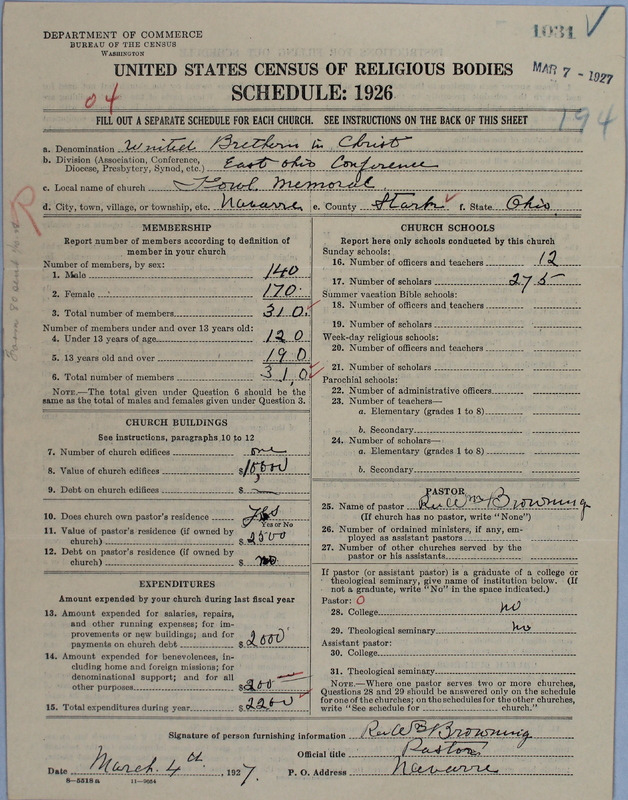 DEPARTMENT OF COMMERCE
BUREAU OF THE CENSUS
WASHINGTON
1031
MAR 7 - 1927
UNITED STATES CENSUS OF RELIGIOUS BODIES
SCHEDULE: 1926
04
194
FILL OUT A SEPARATE SCHEDULE FOR EACH CHURCH. SEE INSTRUCTIONS ON THE BACK OF THIS SHEET
a. Denomination United Brethern in Christ
b. Division (Association, Conference, Diocese, Presbytery, Synod, etc.) East Ohio Conference
c. Local name of church Memoral
d. City, town, village, or township, etc. Navarre e. County Stark f. State Ohio
MEMBERSHIP
Report number of members according to definition of
member in your church
Number of members, by sex:
1. Male 140
2. Female 170
3. Total number of members 310
Number of members under and over 13 years old:
4. Under 13 years of age 120
5. 13 years old and over 190
6. Total number of members 310
NOTE.—The total given under Question 6 should be
same as the total of males and females given under Question 3.
CHURCH BUILDINGS
See instructions, paragraphs 10 to 12
7. Number of church edifices one
8. Value of church edifices $10,000
9. Debt on church edifices $
10. Does church own pastor's residence Yes
Yes or No
11. Value of pastor's residence (if owned by
church) $2500
12. Debt on pastor's residence (if owned by
church) $no
EXPENDITURES
Amount expended by your church during last fiscal year
13. Amount expended for salaries, repairs,
and other running expenses; for im-
provements or new buildings; and for
payments on church debt $2000
14. Amount expended for benevolences, in-
cluding home and foreign missions; for
denominational support; and for all
other purposes $200
15. Total expenditures during year $2200
CHURCH SCHOOLS
Report here only schools conducted by this church
Sunday schools:
16. Number of officers and teachers 12
17. Number of scholars 275
Summer vacation Bible schools:
18. Number of officers and teachers
19. Number of scholars
Week-day religious schools:
20. Number of officers and teachers
21. Number of scholars
Parochial schools:
22. Number of administrative officers
23. Number of teachers—
a. Elementary (grades 1 to 8)
b. Secondary
24. Number of scholars—
a. Elementary (grades 1 to 8)
b. Secondary
PASTOR
25. Name of pastor Browning
(If church has no pastor, write "None")
26. Number of ordained ministers, if any, em-
ployed as assistant pastors
27. Number of other churches served by the
pastor or his assistants
If pastor (or assistant pastor) is a graduate of a college or
theological seminary, give name of institution below. (If
not a graduate, write "No" in the space indicated.)
Pastor: 0
28. College no
29. Theological seminary no
Assistant pastor:
30. College
31. Theological seminary
NOTE.—Where one pastor serves two or more churches,
Questions 28 and 29 should be answered only on the schedule
for one of the churches; on the schedules for the other churches,
write "See schedule for church."
Signature of person furnishing information Browning
Official title Pastor
Date March 4th, 1927. P. O. Address Navarre
8-5318a 11-9054